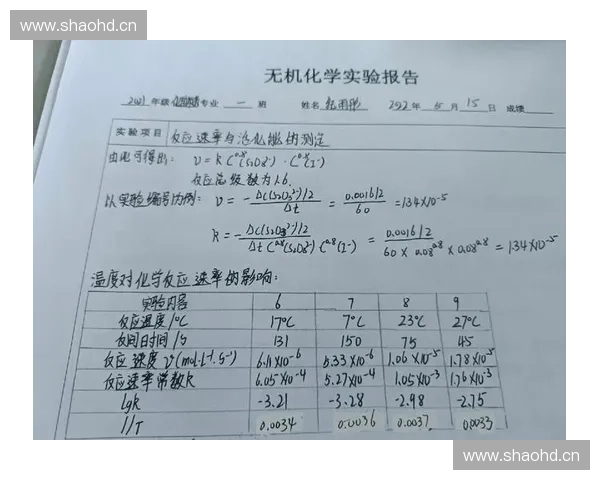 www.shaohd.cn
www.shaohd.cn
无机化学实验报告
2021年级 专业 一 班 姓名 年5月15日 成绩
实验项目 反应速率与活化能的测定
由此可得出: v=k C^0.8(S₂O₈²⁻)·C^0.8(I⁻)
反应总级数为1.6.
以实验编号1为例: v = -Δc(S₂O₃²⁻)/2 / Δt = 0.0016/2 / 60 = 1.34×10⁻⁵
k = -Δc(S₂O₃²⁻)/2 / Δt C^0.8(S₂O₈²⁻) C^0.8(I⁻) = 0.0016/2 / 60 × 0.08^0.8 × 0.08^0.8 = 1.34×10⁻⁵
温度对化学反应速率的影响:
实验内容 6 7 8 9
反应温度/°C 17°C 7°C 23°C 27°C
反间日时间/s 131 150 75 45
反应速度v(mol·L⁻¹·s⁻¹) 6.11×10⁻⁶ 5.33×10⁻⁶ 1.06×10⁻⁵ 1.78×10⁻⁵
反应速率常数k 6.05×10⁻⁴ 5.27×10⁻⁴ 1.05×10⁻³ 1.76×10⁻³
lgk -3.21 -3.28 -2.98 -2.75
1/T 0.0034 0.0036 0.0037 0.0033
www.shaohd.cn
www.shaohd.cn